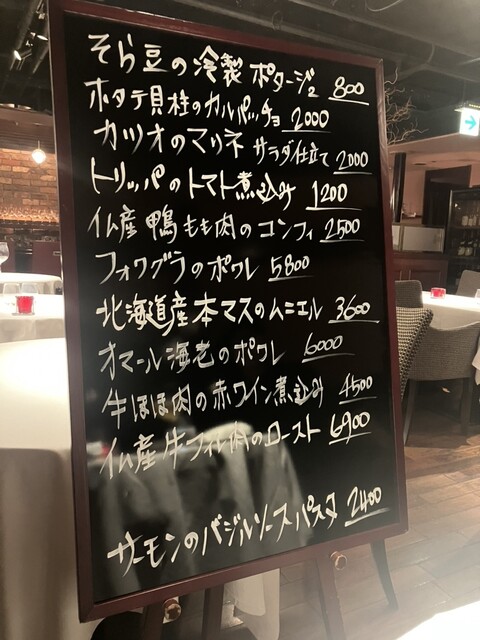 そら豆の冷製 ポタージュ 800
ホタテ貝柱のカルパッチョ 2000
カツオのマリネ サラダ仕立て 2000
トリッパのトマト煮込み 1200
仏産 鴨もも肉のコンフィ 2500
フォワグラのポワレ 5800
北海道産本マスのムニエル 3600
オマール海老のポワレ 6000
牛ほほ肉の赤ワイン煮込み 4500
仏産牛フィレ肉のロースト 6900
サーモンのバジルソースパスタ 2400